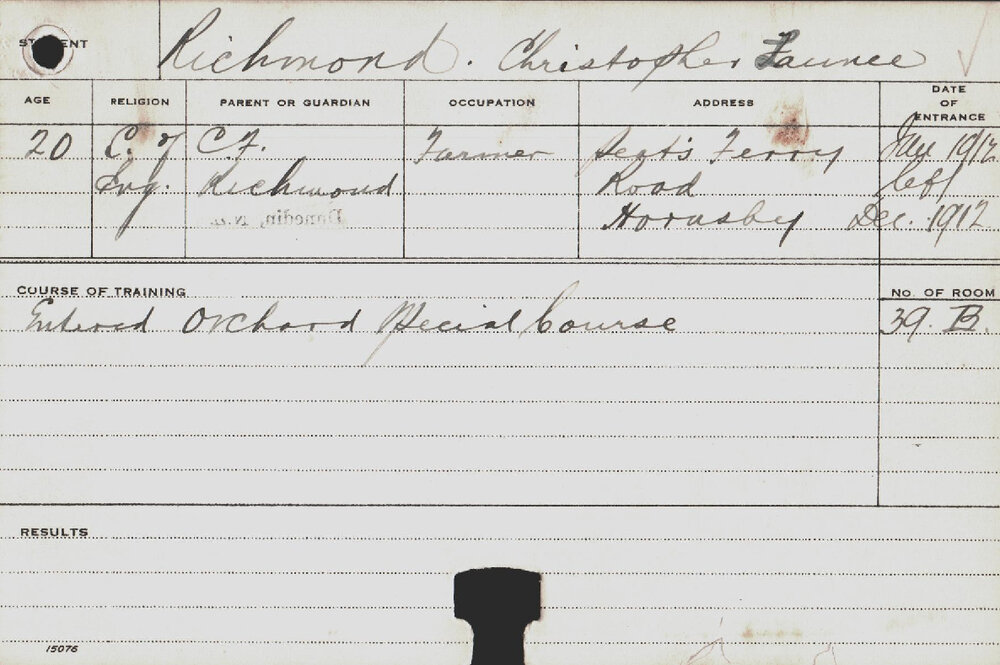 STUDENT Richmond. Christopher Faunce
AGE RELIGION PARENT OR GUARDIAN OCCUPATION ADDRESS DATE OF ENTRANCE
20 C. of C.F. Farmer Peat's Ferry Jan 1912
Eng. Richmond Road left
Dunedin, N.Z. Hornsby Dec. 1912
COURSE OF TRAINING No. OF ROOM
Entered Orchard Special Course 39. B.
RESULTS
15076